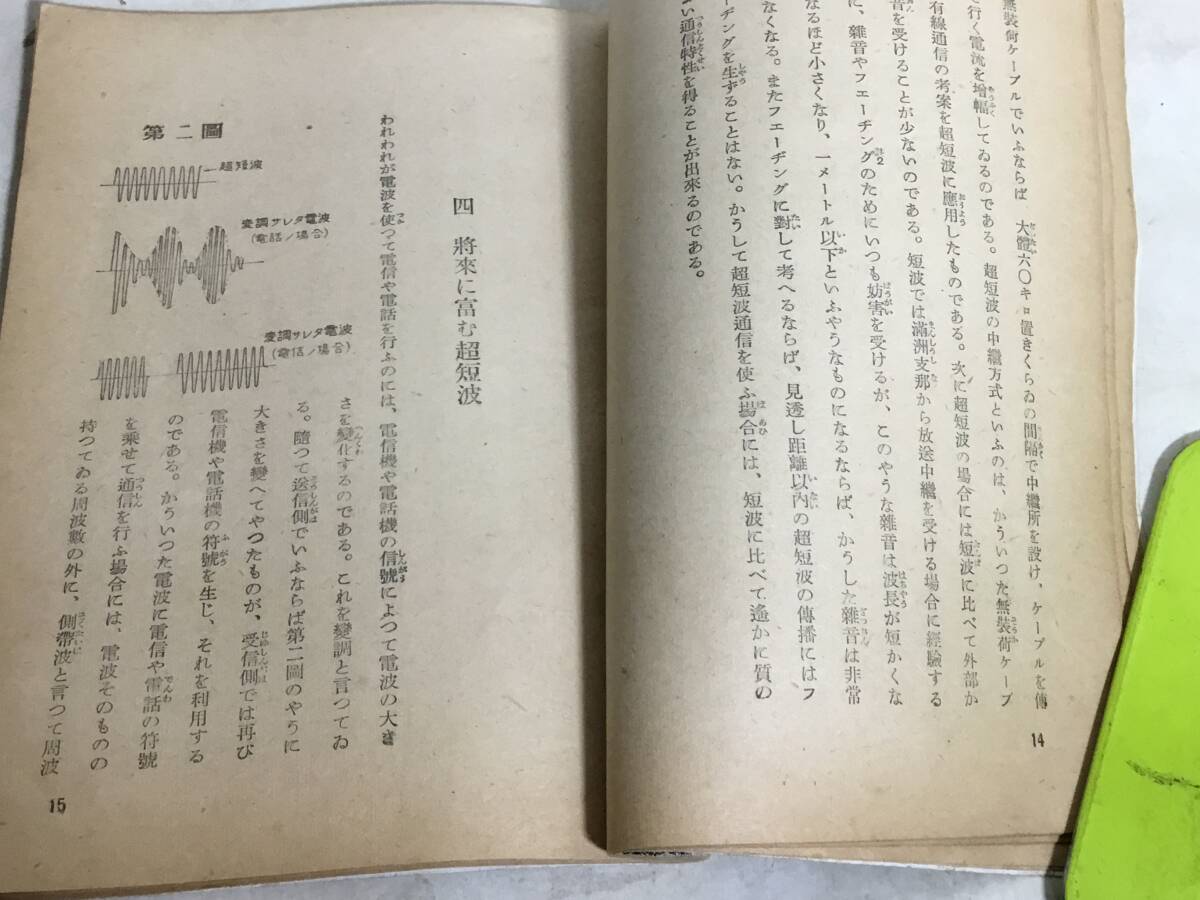 無裝荷ケーブルでいふならば 大體六〇キロ置きくらゐの間隔で中繼所を設け、ケーブルを傳
て行く電流を增幅してゐるのである。超短波の中繼方式といふのは、かういつた無裝荷ケーブ
有線通信の考案を超短波に應用したものである。次に超短波の場合には短波に比べて外部か
音を受けることが少ないのである。短波では滿洲支那から放送中繼を受ける場合に經驗する
に、雜音やフェーヂング註2のためにいつも妨害を受けるが、このやうな雜音は波長が短かくな
なるほど小さくなり、一メートル以下といふやうなものになるならば、かうした雜音は非常
なくなる。またフェーヂングに對して考へるならば、見透し距離以內の超短波の傳播にはフ
ーヂングを生ずることはない。かうして超短波通信を使ふ場合には、短波に比べて遙かに質の
い通信特性を得ることが出來るのである。
14
四 將來に富む超短波
われわれが電波を使つて電信や電話を行ふのには、電信機や電話機の信號によつて電波の大き
さを變化するのである。これを變調と言つてゐ
る。隨つて送信側でいふならば第二圖のやうに
大きさを變へてやつたものが、受信側では再び
電信機や電話機の符號を生じ、それを利用する
のである。かういつた電波に電信や電話の符號
を乘せて通信を行ふ場合には、電波そのものの
持つてゐる周波數の外に、側帶波と言つて周波
第二圖
超短波
変調サレタ電波
(電話ノ場合)
変調サレタ電波
(電信ノ場合)
15